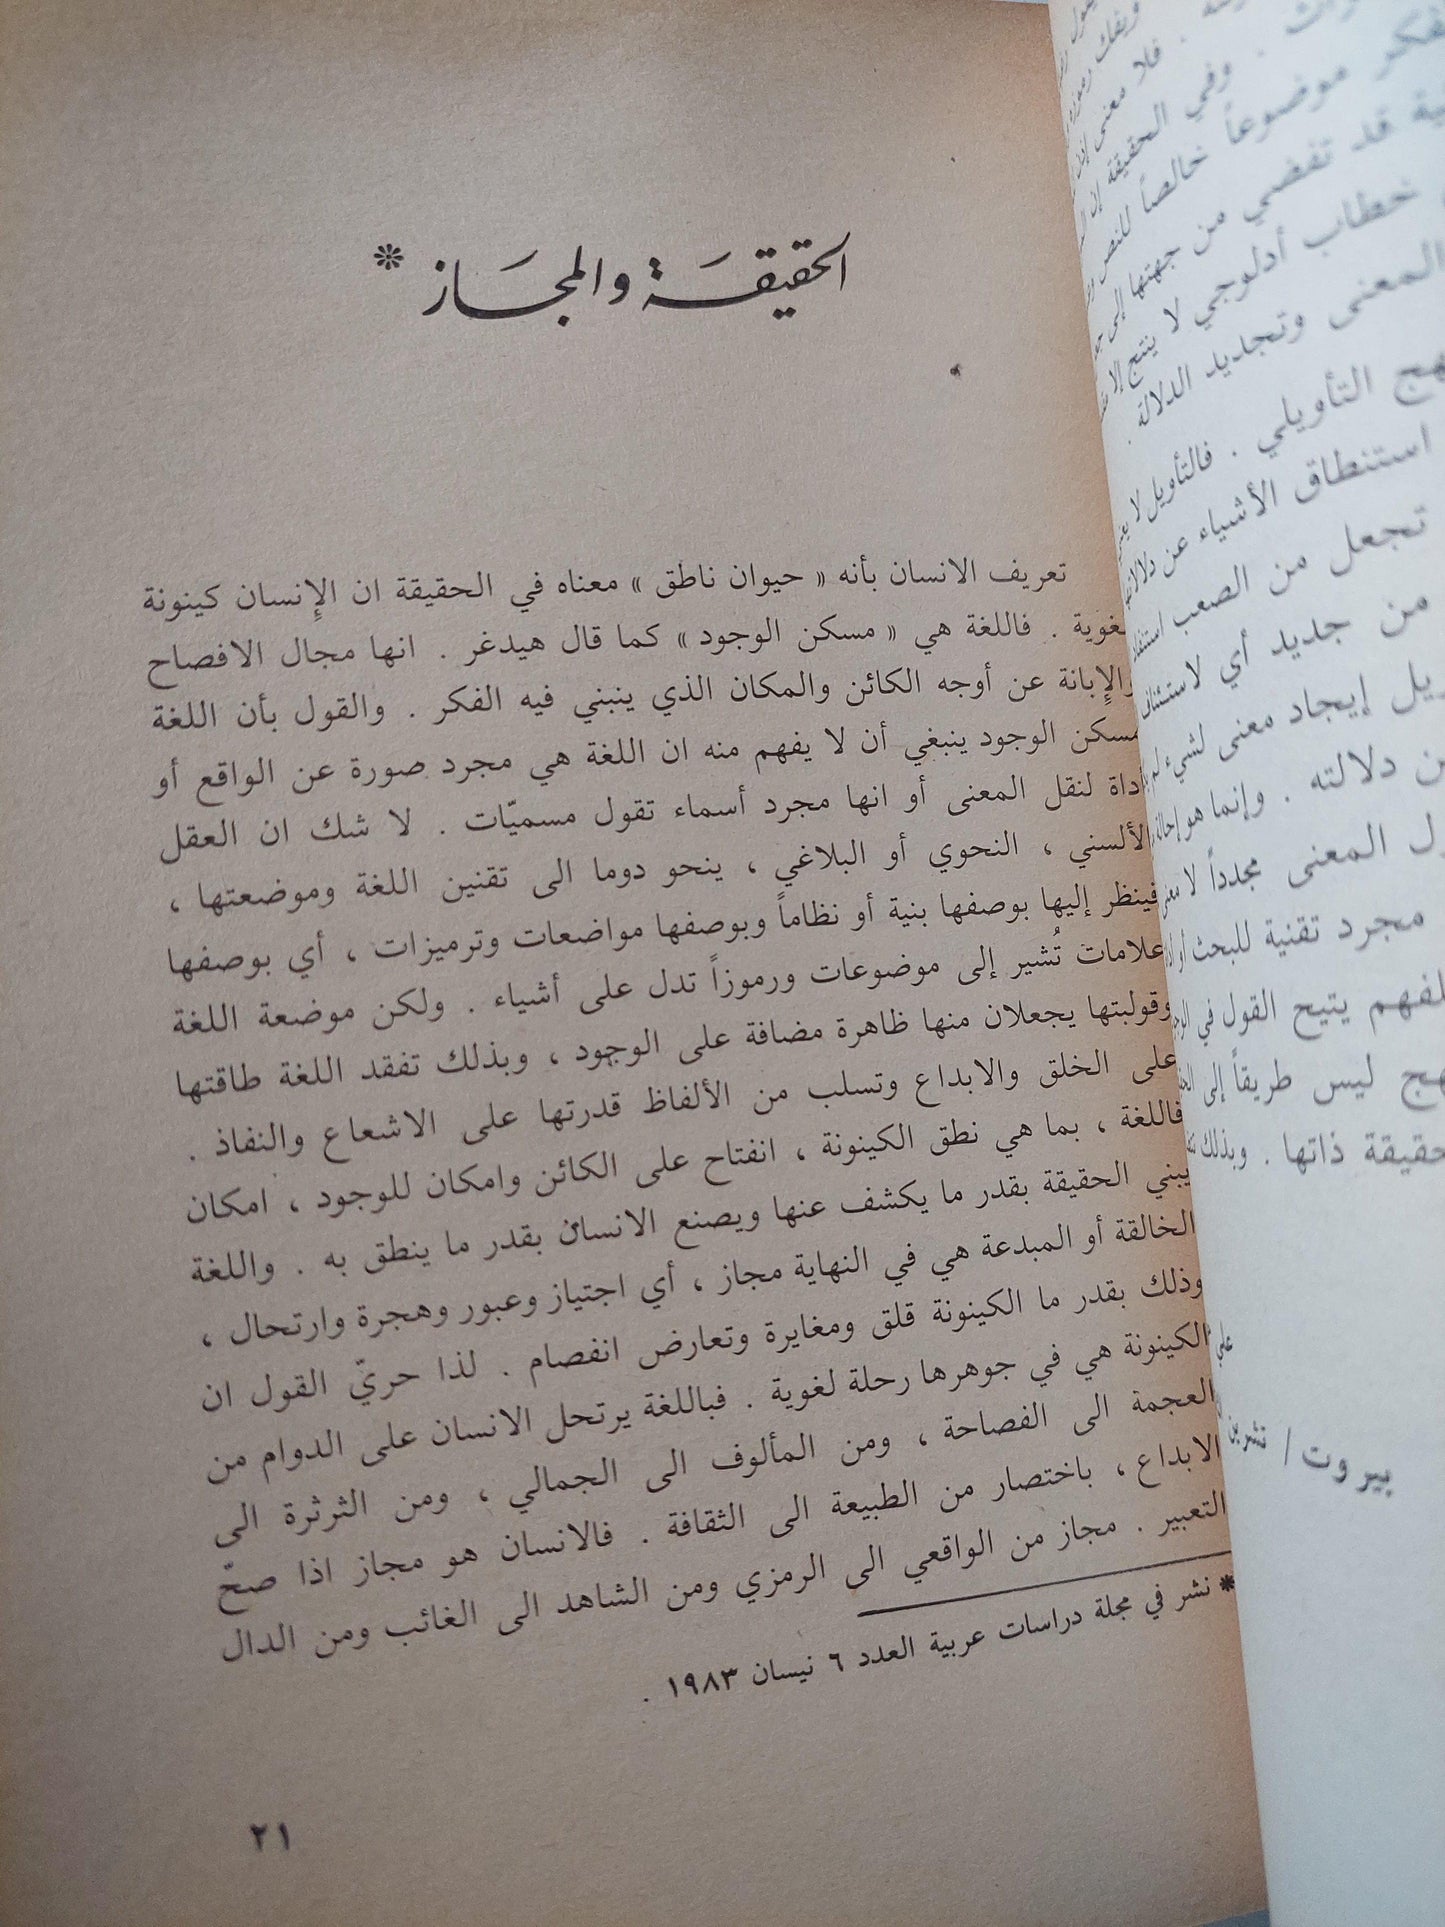 الحقيقة والمجاز *
تعريف الانسان بأنه « حيوان ناطق » معناه في الحقيقة ان الإنسان كينونة
لغوية . فاللغة هي « مسكن الوجود » كما قال هيدغر . انها مجال الافصاح
والإبانة عن أوجه الكائن والمكان الذي ينبني فيه الفكر . والقول بأن اللغة
مسكن الوجود ينبغي أن لا يفهم منه ان اللغة هي مجرد صورة عن الواقع أو
أداة لنقل المعنى أو انها مجرد أسماء تقول مسميّات . لا شك ان العقل
الألسني ، النحوي أو البلاغي ، ينحو دوما الى تقنين اللغة وموضعتها ،
فينظر إليها بوصفها بنية أو نظاماً وبوصفها مواضعات وترميزات ، أي بوصفها
علامات تُشير إلى موضوعات ورموزاً تدل على أشياء . ولكن موضعة اللغة
وقولبتها يجعلان منها ظاهرة مضافة على الوجود ، وبذلك تفقد اللغة طاقتها
على الخلق والابداع وتسلب من الألفاظ قدرتها على الاشعاع والنفاذ .
فاللغة ، بما هي نطق الكينونة ، انفتاح على الكائن وامكان للوجود ، امكان
يبني الحقيقة بقدر ما يكشف عنها ويصنع الانسان بقدر ما ينطق به . واللغة
الخالقة أو المبدعة هي في النهاية مجاز ، أي اجتياز وعبور وهجرة وارتحال ،
وذلك بقدر ما الكينونة قلق ومغايرة وتعارض انفصام . لذا حريّ القول ان
الكينونة هي في جوهرها رحلة لغوية . فباللغة يرتحل الانسان على الدوام من
العجمة الى الفصاحة ، ومن المألوف الى الجمالي ، ومن الثرثرة الى
الابداع ، باختصار من الطبيعة الى الثقافة . فالانسان هو مجاز اذا صحّ
التعبير . مجاز من الواقعي الى الرمزي ومن الشاهد الى الغائب ومن الدال
* نشر في مجلة دراسات عربية العدد ٦ نيسان ١٩٨٣ .
٢١
فلا معنى إذن
وفي الحقيقة إن
موضوعاً خالصاً للنص
قد تفضي من جهتها إلى
خطاب أدلوجي لا ينتج إلا
المعنى وتجديد الدلالة .
التأويلي . فالتأويل لا
استنطاق الأشياء عن
تجعل من الصعب
من جديد أي لاستئناف
إيجاد معنى لشيء لم
دلالته . وإنما هو إحالة
المعنى مجدداً لا معنى
مجرد تقنية للبحث أو
يتيح القول في
ليس طريقاً إلى
ذاتها . وبذلك
علي
بيروت / تشرين